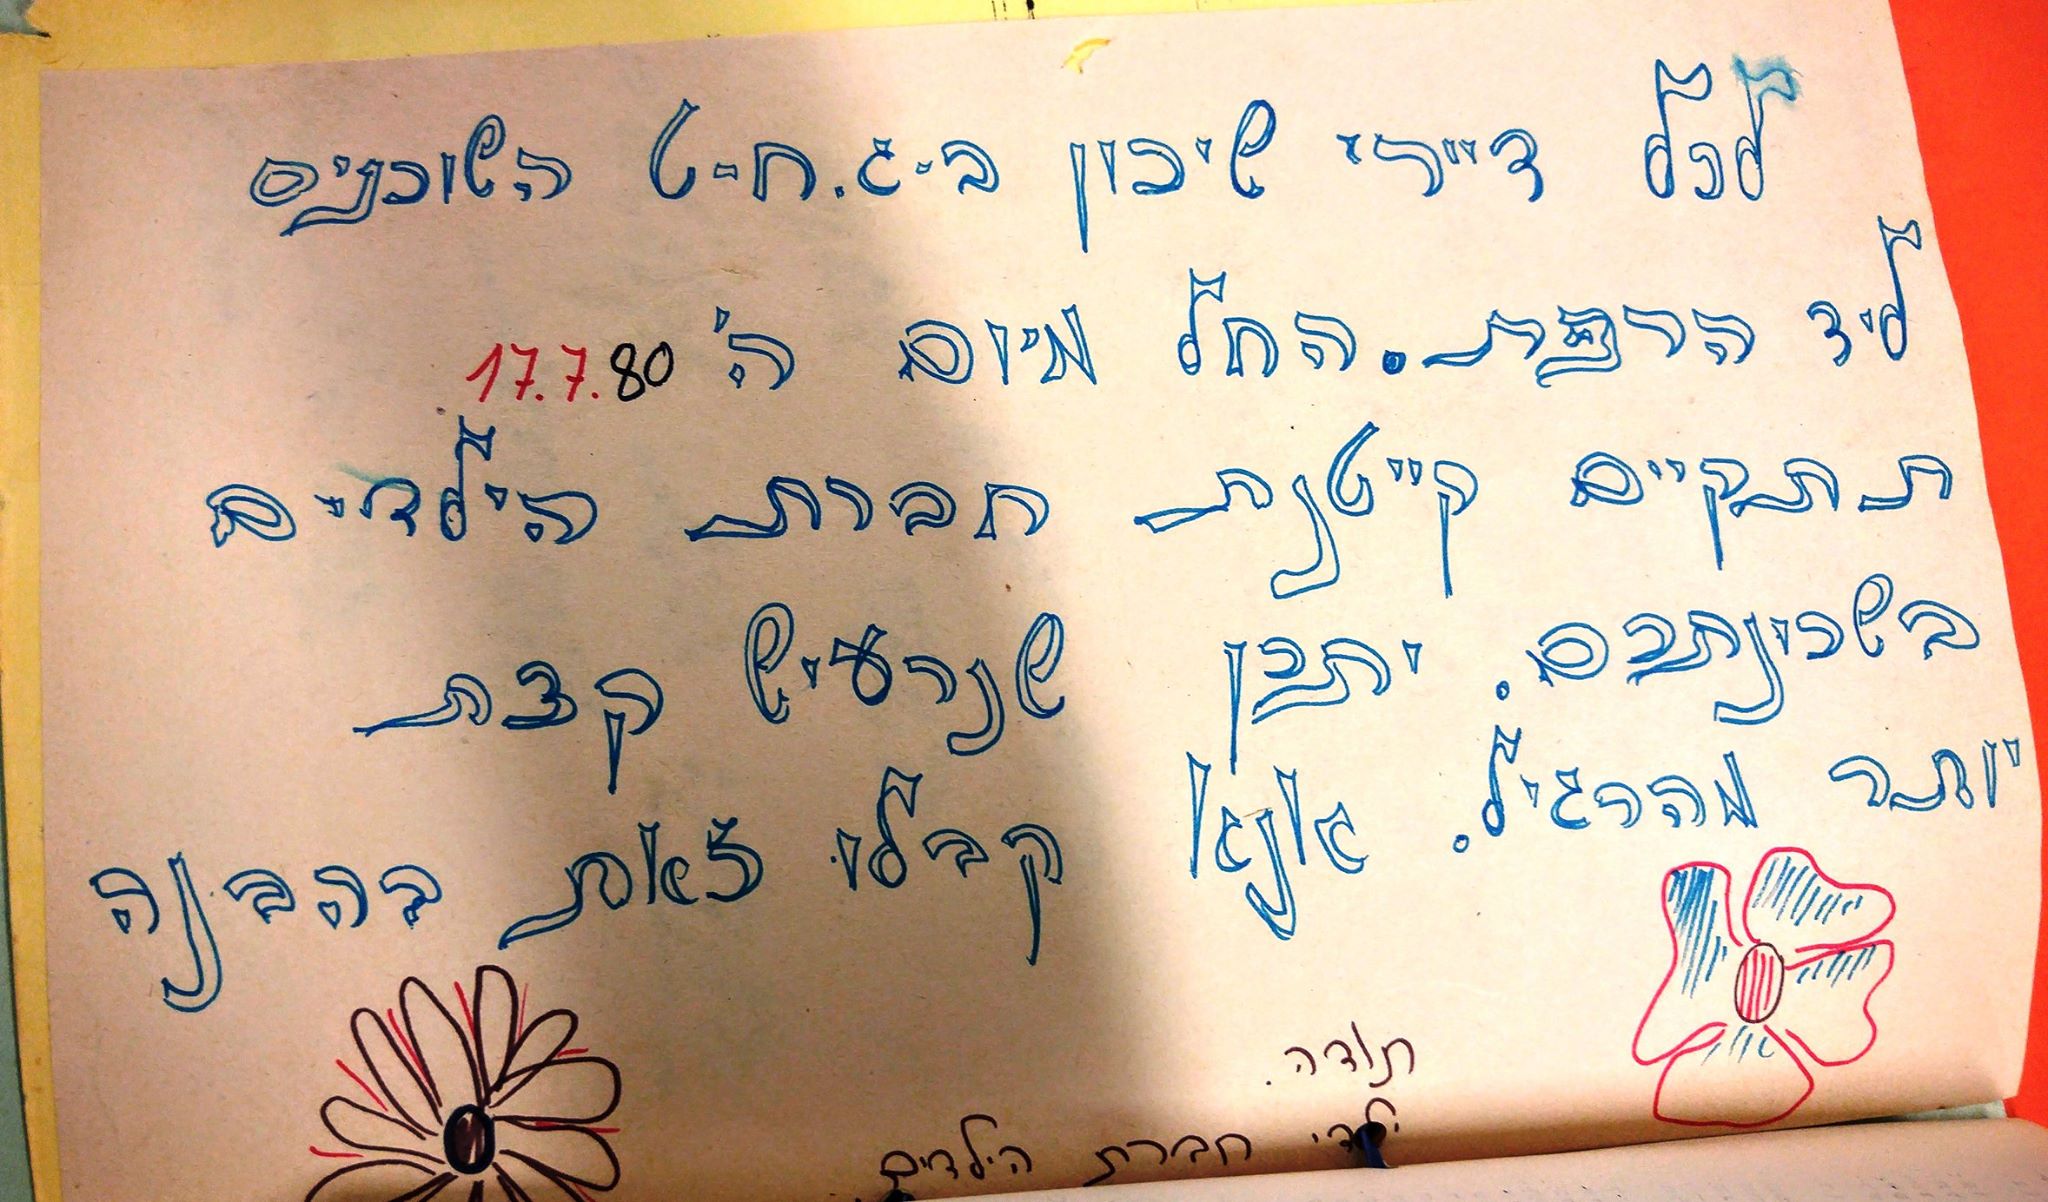 לכל דיירי שיכון ב-ג.ח-ט השוכנים
ליד הרפת. החל מיום ה' 17.7.80
תתקיים קייטנת חברת הילדים
בשכינתכם. יתכן שנרעיש קצת
יותר מהרגיל. אנא קבלו זאת בהבנה
תודה.
ילדי חברת הילדים.